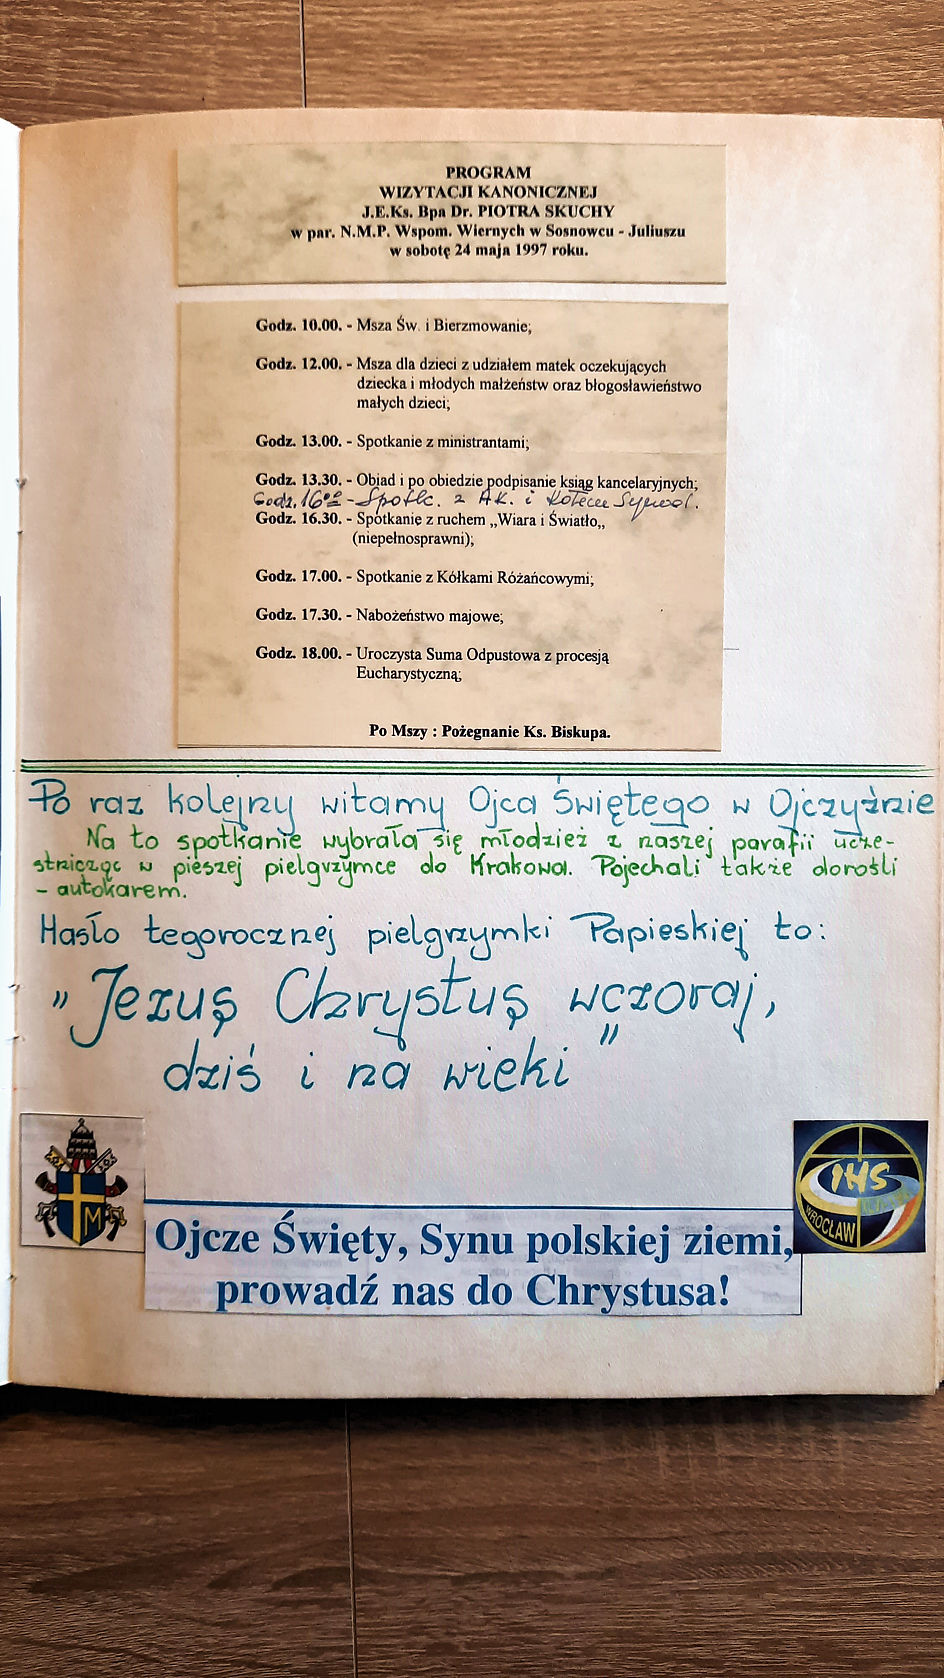 PROGRAM
WIZYTACJI KANONICZNEJ
J.E.Ks. Bpa Dr. PIOTRA SKUCHY
w par. N.M.P. Wspom. Wiernych w Sosnowcu - Juliuszu
w sobotę 24 maja 1997 roku.
Godz. 10.00. - Msza Św. i Bierzmowanie;
Godz. 12.00. - Msza dla dzieci z udziałem matek oczekujących
dziecka i młodych małżeństw oraz błogosławieństwo
małych dzieci;
Godz. 13.00. - Spotkanie z ministrantami;
Godz. 13.30. - Obiad i po obiedzie podpisanie ksiąg kancelaryjnych;
Godz. 16⁰⁰ - Spotk. z A.K. i Kołem Synod.
Godz. 16.30. - Spotkanie z ruchem „Wiara i Światło„
(niepełnosprawni);
Godz. 17.00. - Spotkanie z Kółkami Różańcowymi;
Godz. 17.30. - Nabożeństwo majowe;
Godz. 18.00. - Uroczysta Suma Odpustowa z procesją
Eucharystyczną;
Po Mszy : Pożegnanie Ks. Biskupa.
Po raz kolejny witamy Ojca Świętego w Ojczyźnie
Na to spotkanie wybrała się młodzież z naszej parafii ucze-
stnicząc w pieszej pielgrzymce do Krakowa. Pojechali także dorośli
- autokarem.
Hasło tegorocznej pielgrzymki Papieskiej to:
„Jezus Chrystus wczoraj,
dziś i na wieki”
M
IHS
WROCŁAW
Ojcze Święty, Synu polskiej ziemi,
prowadź nas do Chrystusa!